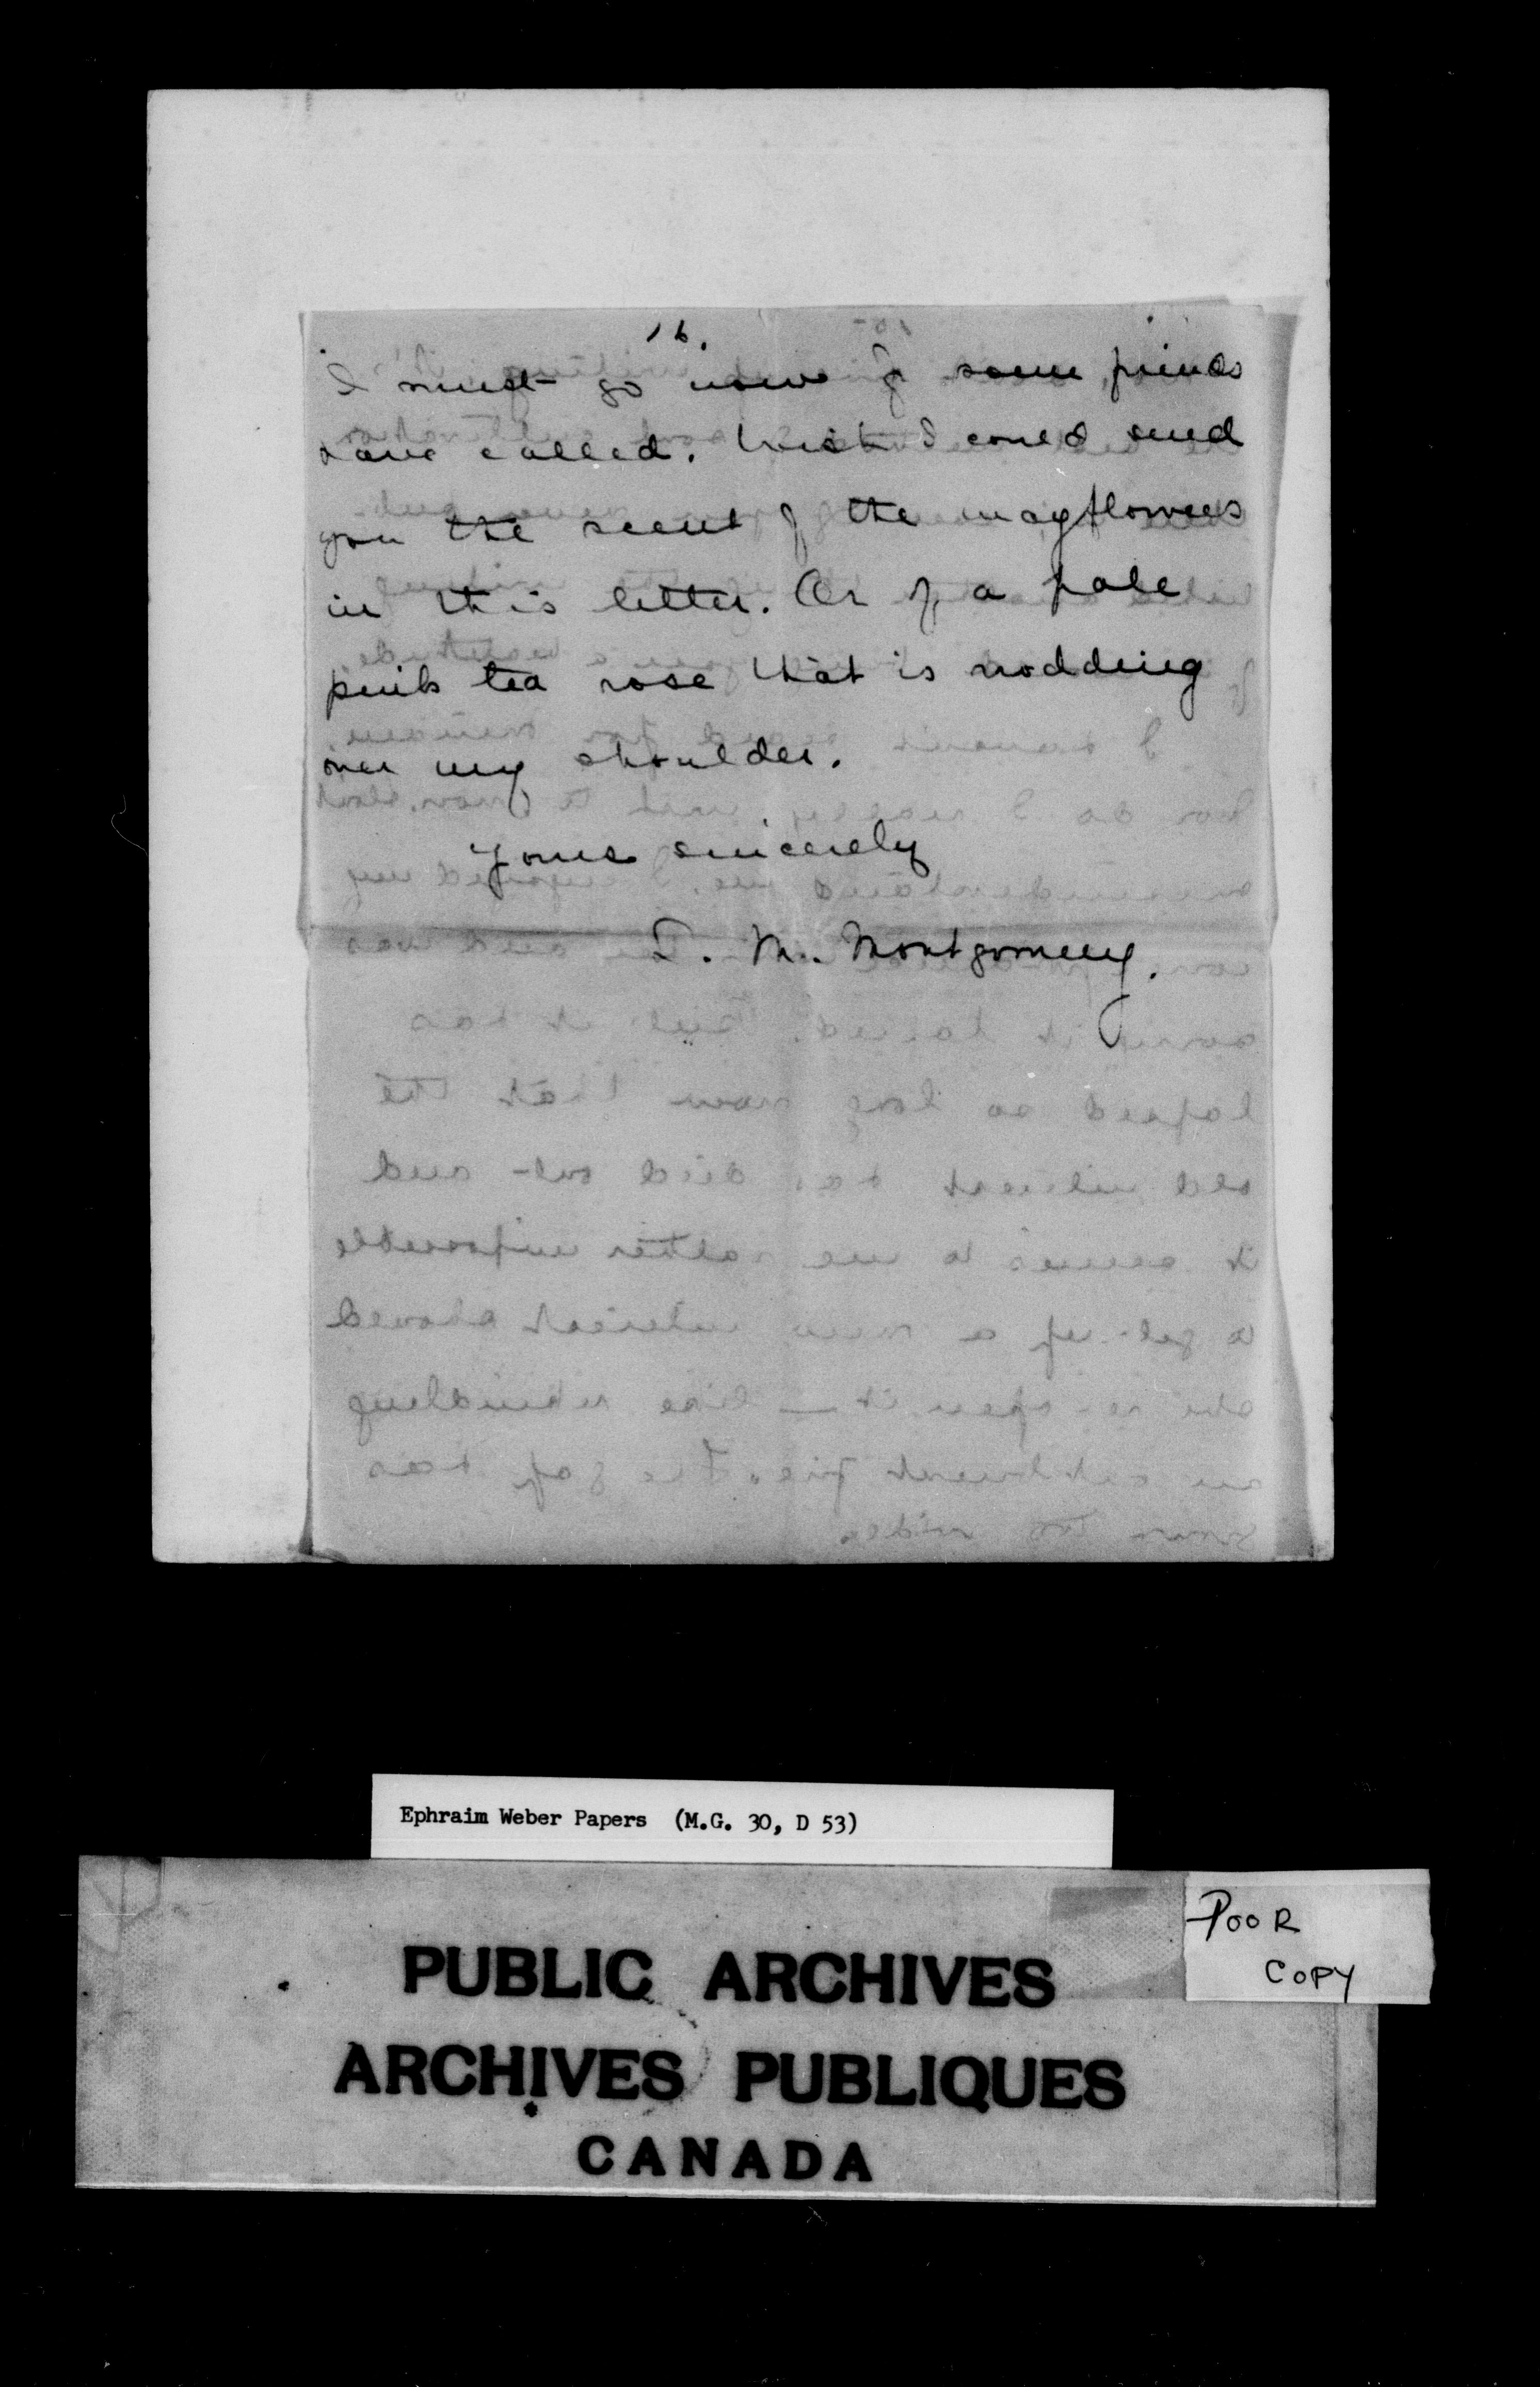 16.
I must go now for some friends
have called. Wish I could send
you the scent of the mayflowers
in this letter. Or of a pale
pink tea rose that is nodding
over my shoulder.
Yours sincerely
L. M. Montgomery.
Ephraim Weber Papers (M.G. 30, D 53)
POOR
COPY
PUBLIC ARCHIVES
ARCHIVES PUBLIQUES
CANADA